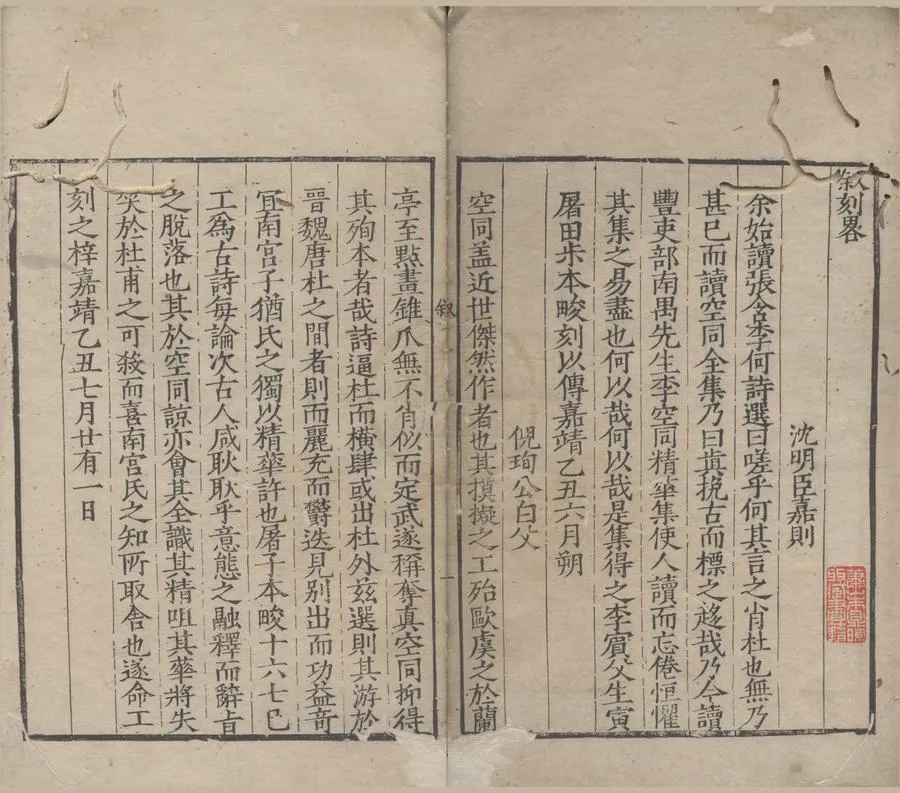 叙刻畧
沈明臣嘉則
余始讀張含李何詩選曰嗟乎何其言之肖杜也無乃
甚巳而讀空同全集乃曰眞挽古而標之移哉乃今讀
豐吏部南禺先生李空同精華集使人讀而忘倦恒懼
其集之易盡也何以哉何以哉是集得之李賔父生寅
屠田未本畯刻以傳嘉靖乙丑六月朔
倪珣公白父
空同盖近世傑然作者也其摸擬之工殆歐虞之於蘭
叙
一
亭至㸃畫錐爪無不肖似而定武遂稱奪真空同抑得
其殉本者哉詩逼杜而横肆或出杜外兹選則其游於
晉魏唐杜之間者則而麗充而欝迭見别出而功益竒
宜南宫子猶氏之獨以精華許也屠子本畯十六七巳
工爲古詩每論次古人咸耿耿乎意態之融釋而辭㫖
之脫落也其於空同諒亦會其全識其精咀其華將失
笑於杜甫之可殺而喜南宫氏之知所取舎也遂命工
刻之梓嘉靖乙丑七月廿有一日